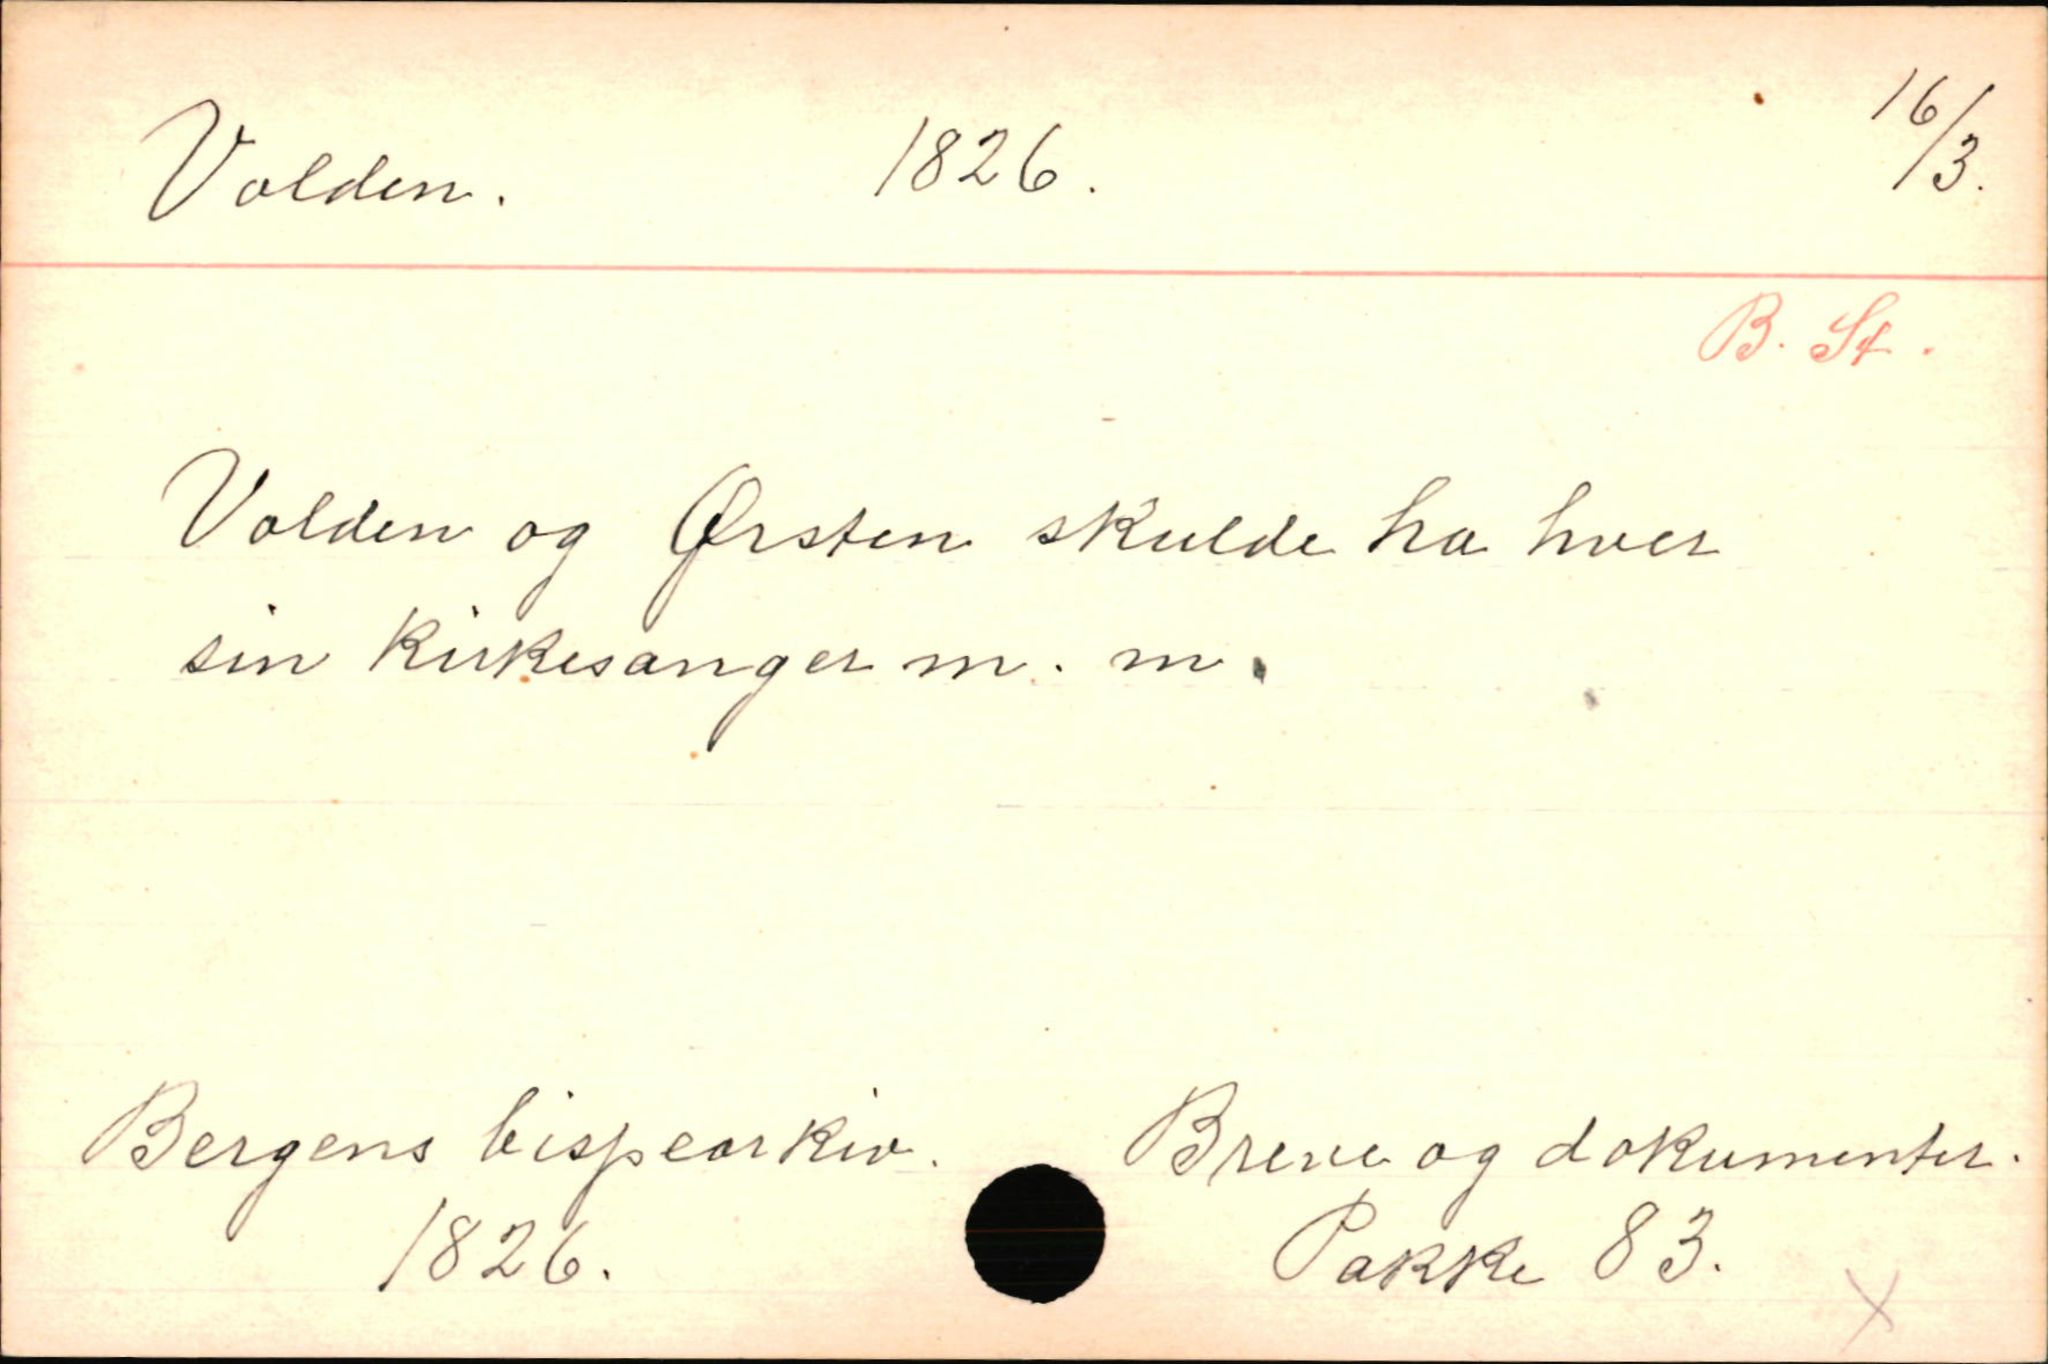 Volden. 1826. 16/3.
B. St.
Volden og Ørsten skulde ha hver
sin kirkesanger m. m.
Bergens bispearkiv. Breve og dokumenter.
1826. Pakke 83.
X